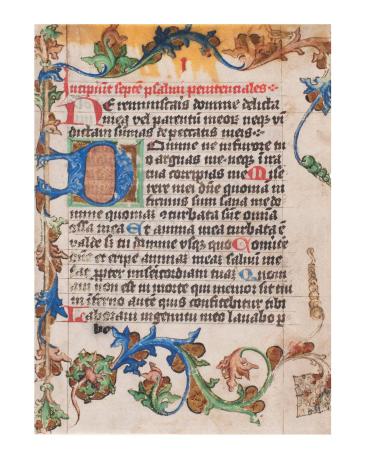 Incipiunt septe psalmi penitenciales
Ne reminiscaris domine delicta
mea vel parentū meoꝝ neqꝫ vī
dictam sumas de peccatis meis
Domine ne in furore tu
o arguas me neqꝫ in ira
tua corripias me Mise
rere mei dn̄e quoniā in
firmus sum sana me do
mine quoniā cturbata sūt om̄ia
ossa mea Et anima mea turbata ē
valde sꝫ tu domine vsqꝫ quo Conuer
tere et eripe animā meā saluū me
fac ꝓpter misericordiam tuā Qm̄
am non est in morte qui memor sit tui
in inferno autē quis confitebitur tibi
Laboraui in gemitu meo lauabo p